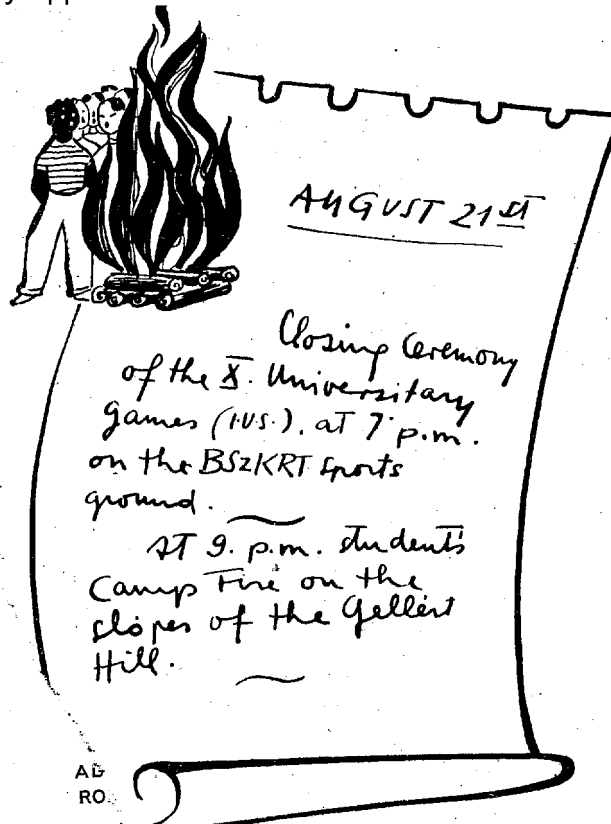 AUGUST 21st
Closing Ceremony
of the X. Universitary
games (I.U.S.), at 7 p.m.
on the BSzKRT sports
ground.
At 9. p.m. students
Camp Fire on the
slopes of the Gellért
Hill.